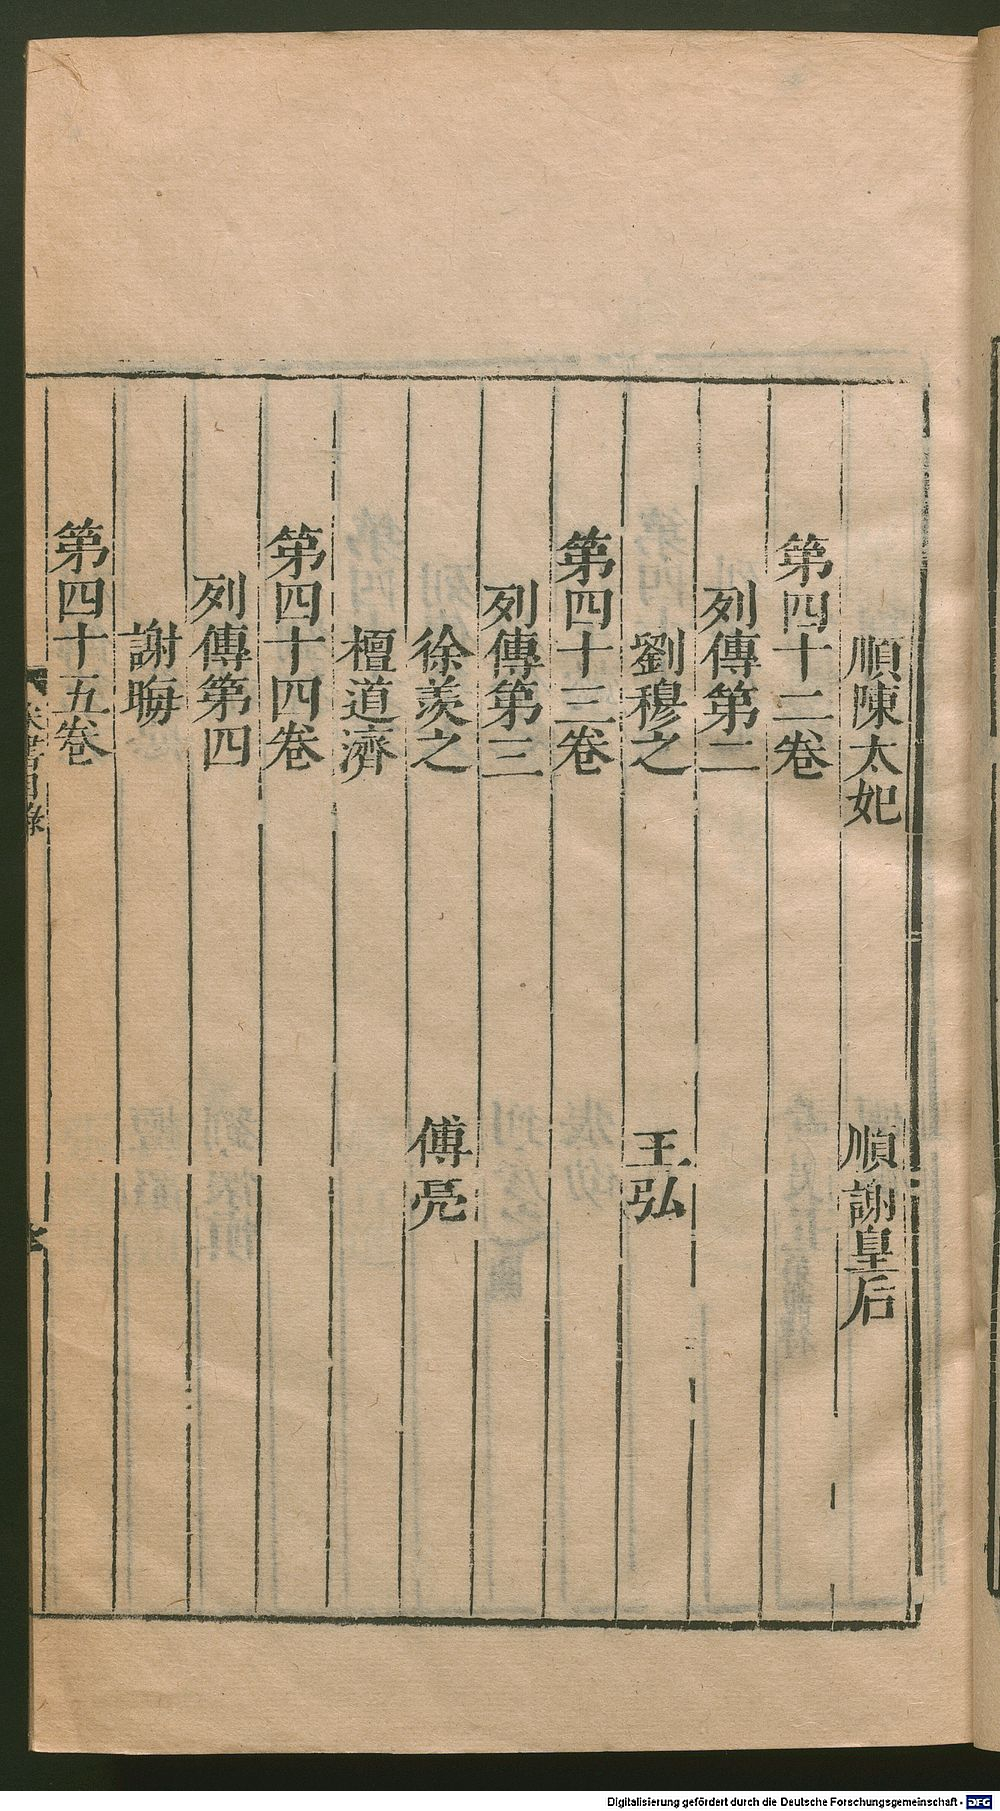 順陳太妃　順謝皇后
第四十二卷
列傳第二
劉穆之　王弘
第四十三卷
列傳第三
徐羨之　傅亮
檀道濟
第四十四卷
列傳第四
謝晦
第四十五卷
書目錄
Digitalisierung gefördert durch die Deutsche Forschungsgemeinschaft - DFG